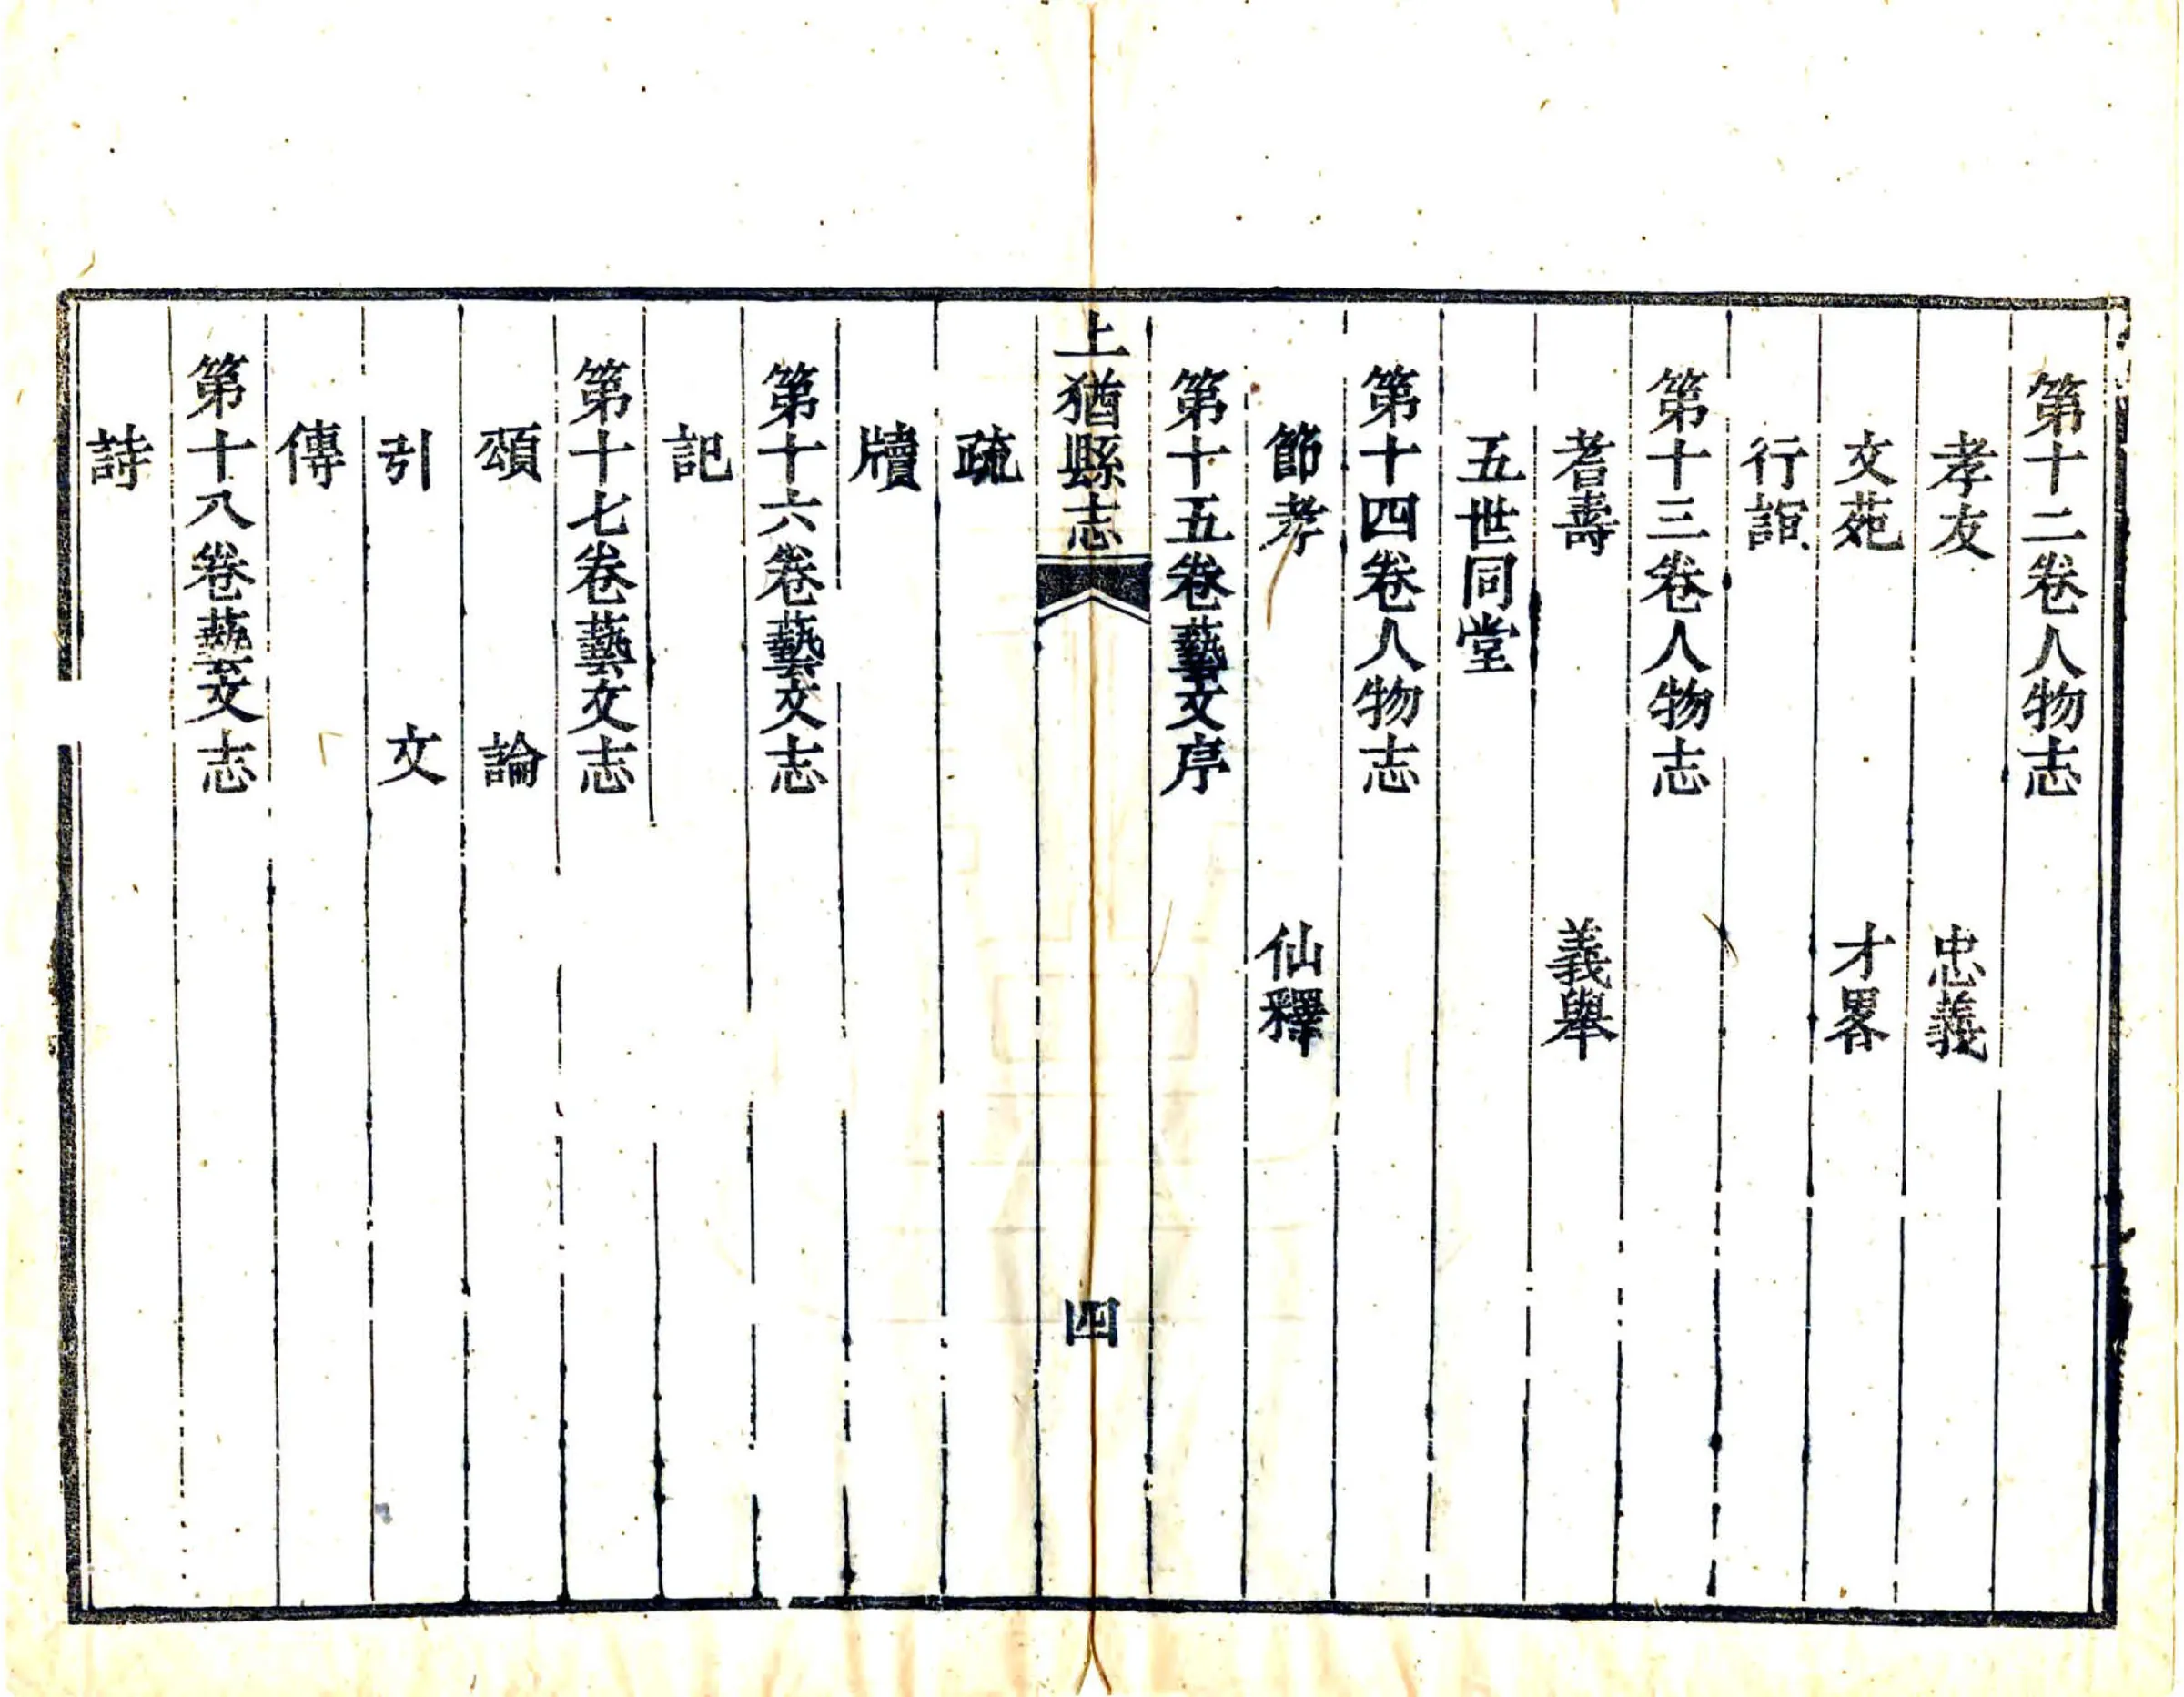 第十二卷人物志
孝友　忠義
文苑　才畧
行誼
第十三卷人物志
耆壽　義舉
五世同堂
第十四卷人物志
節孝　仙釋
第十五卷藝文序
上猶縣志　四
疏
牘
第十六卷藝文志
記
第十七卷藝文志
頌　論
引　文
傳
第十八卷藝文志
詩